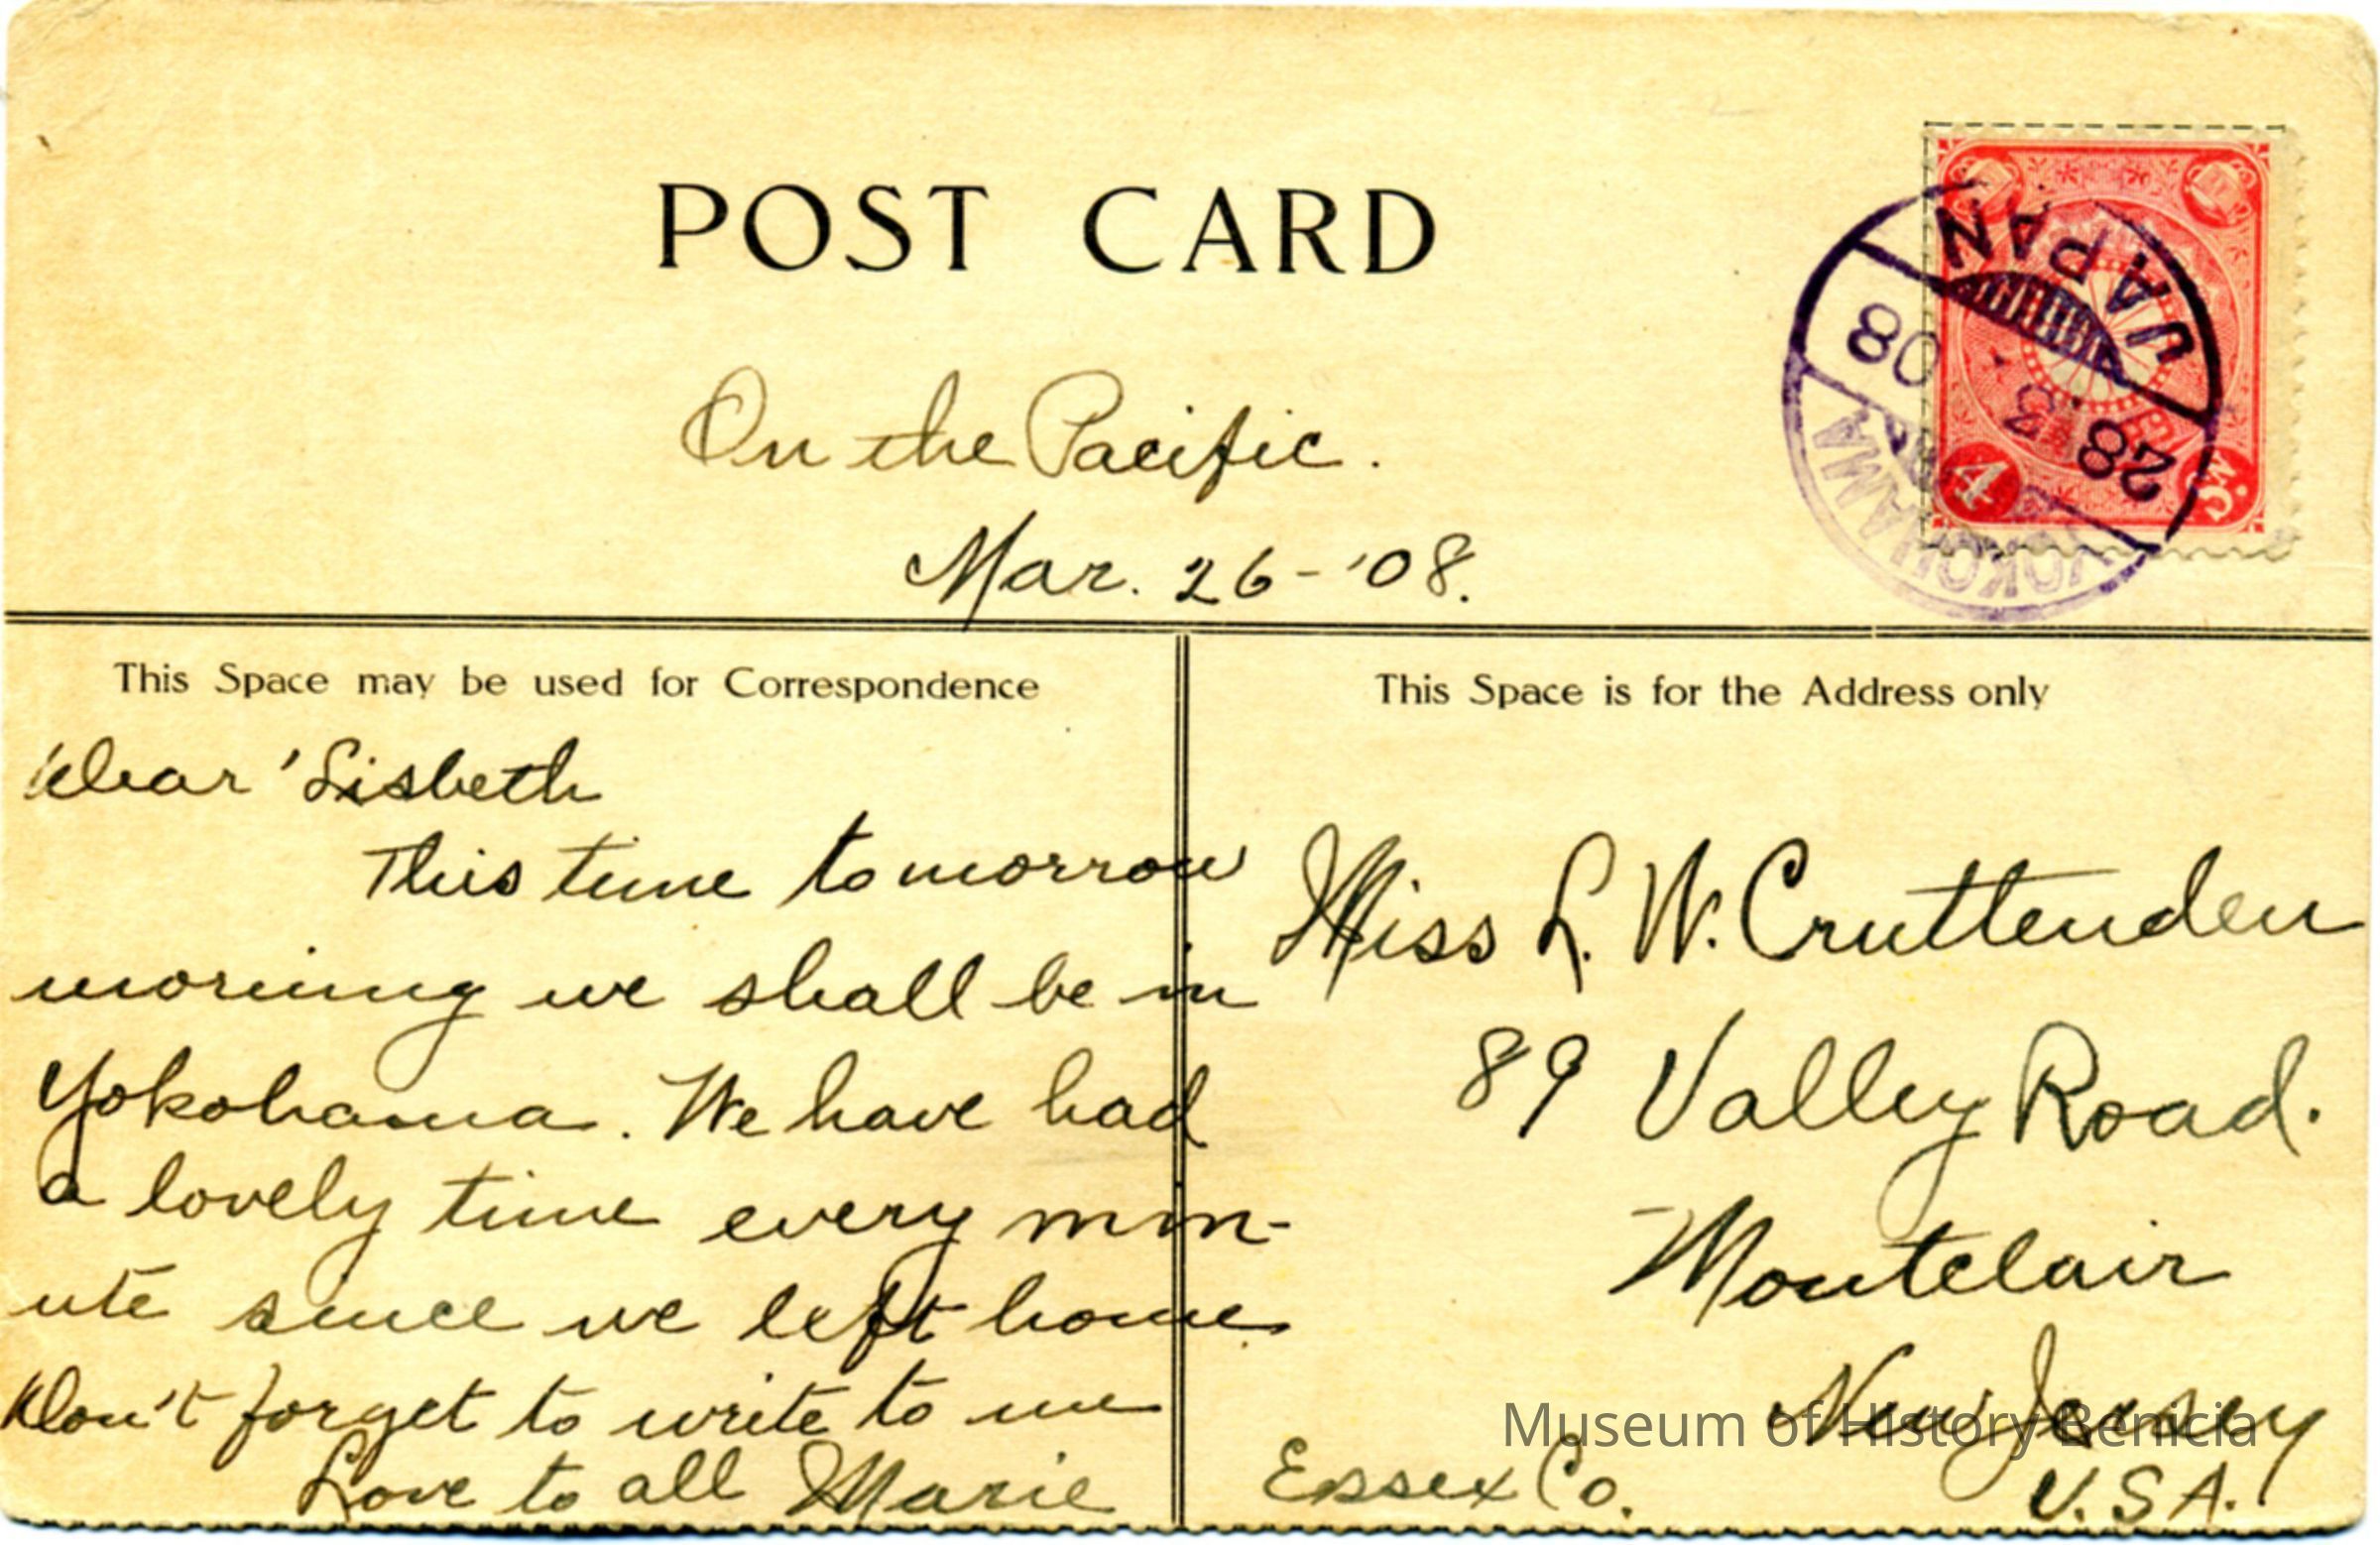 POST CARD
On the Pacific.
Mar. 26-'08.
JAPAN
28 3 08
YOKOHAMA
4
This Space may be used for Correspondence
Dear 'Lisbeth
This time tomorrow
morning we shall be in
Yokohama. We have had
a lovely time every min-
ute since we left home.
Don't forget to write to me
Love to all Marie
This Space is for the Address only
Miss L. W. Cruttenden
89 Valley Road.
Montclair
New Jersey
Essex Co.
U.S.A.
Museum of History Benicia